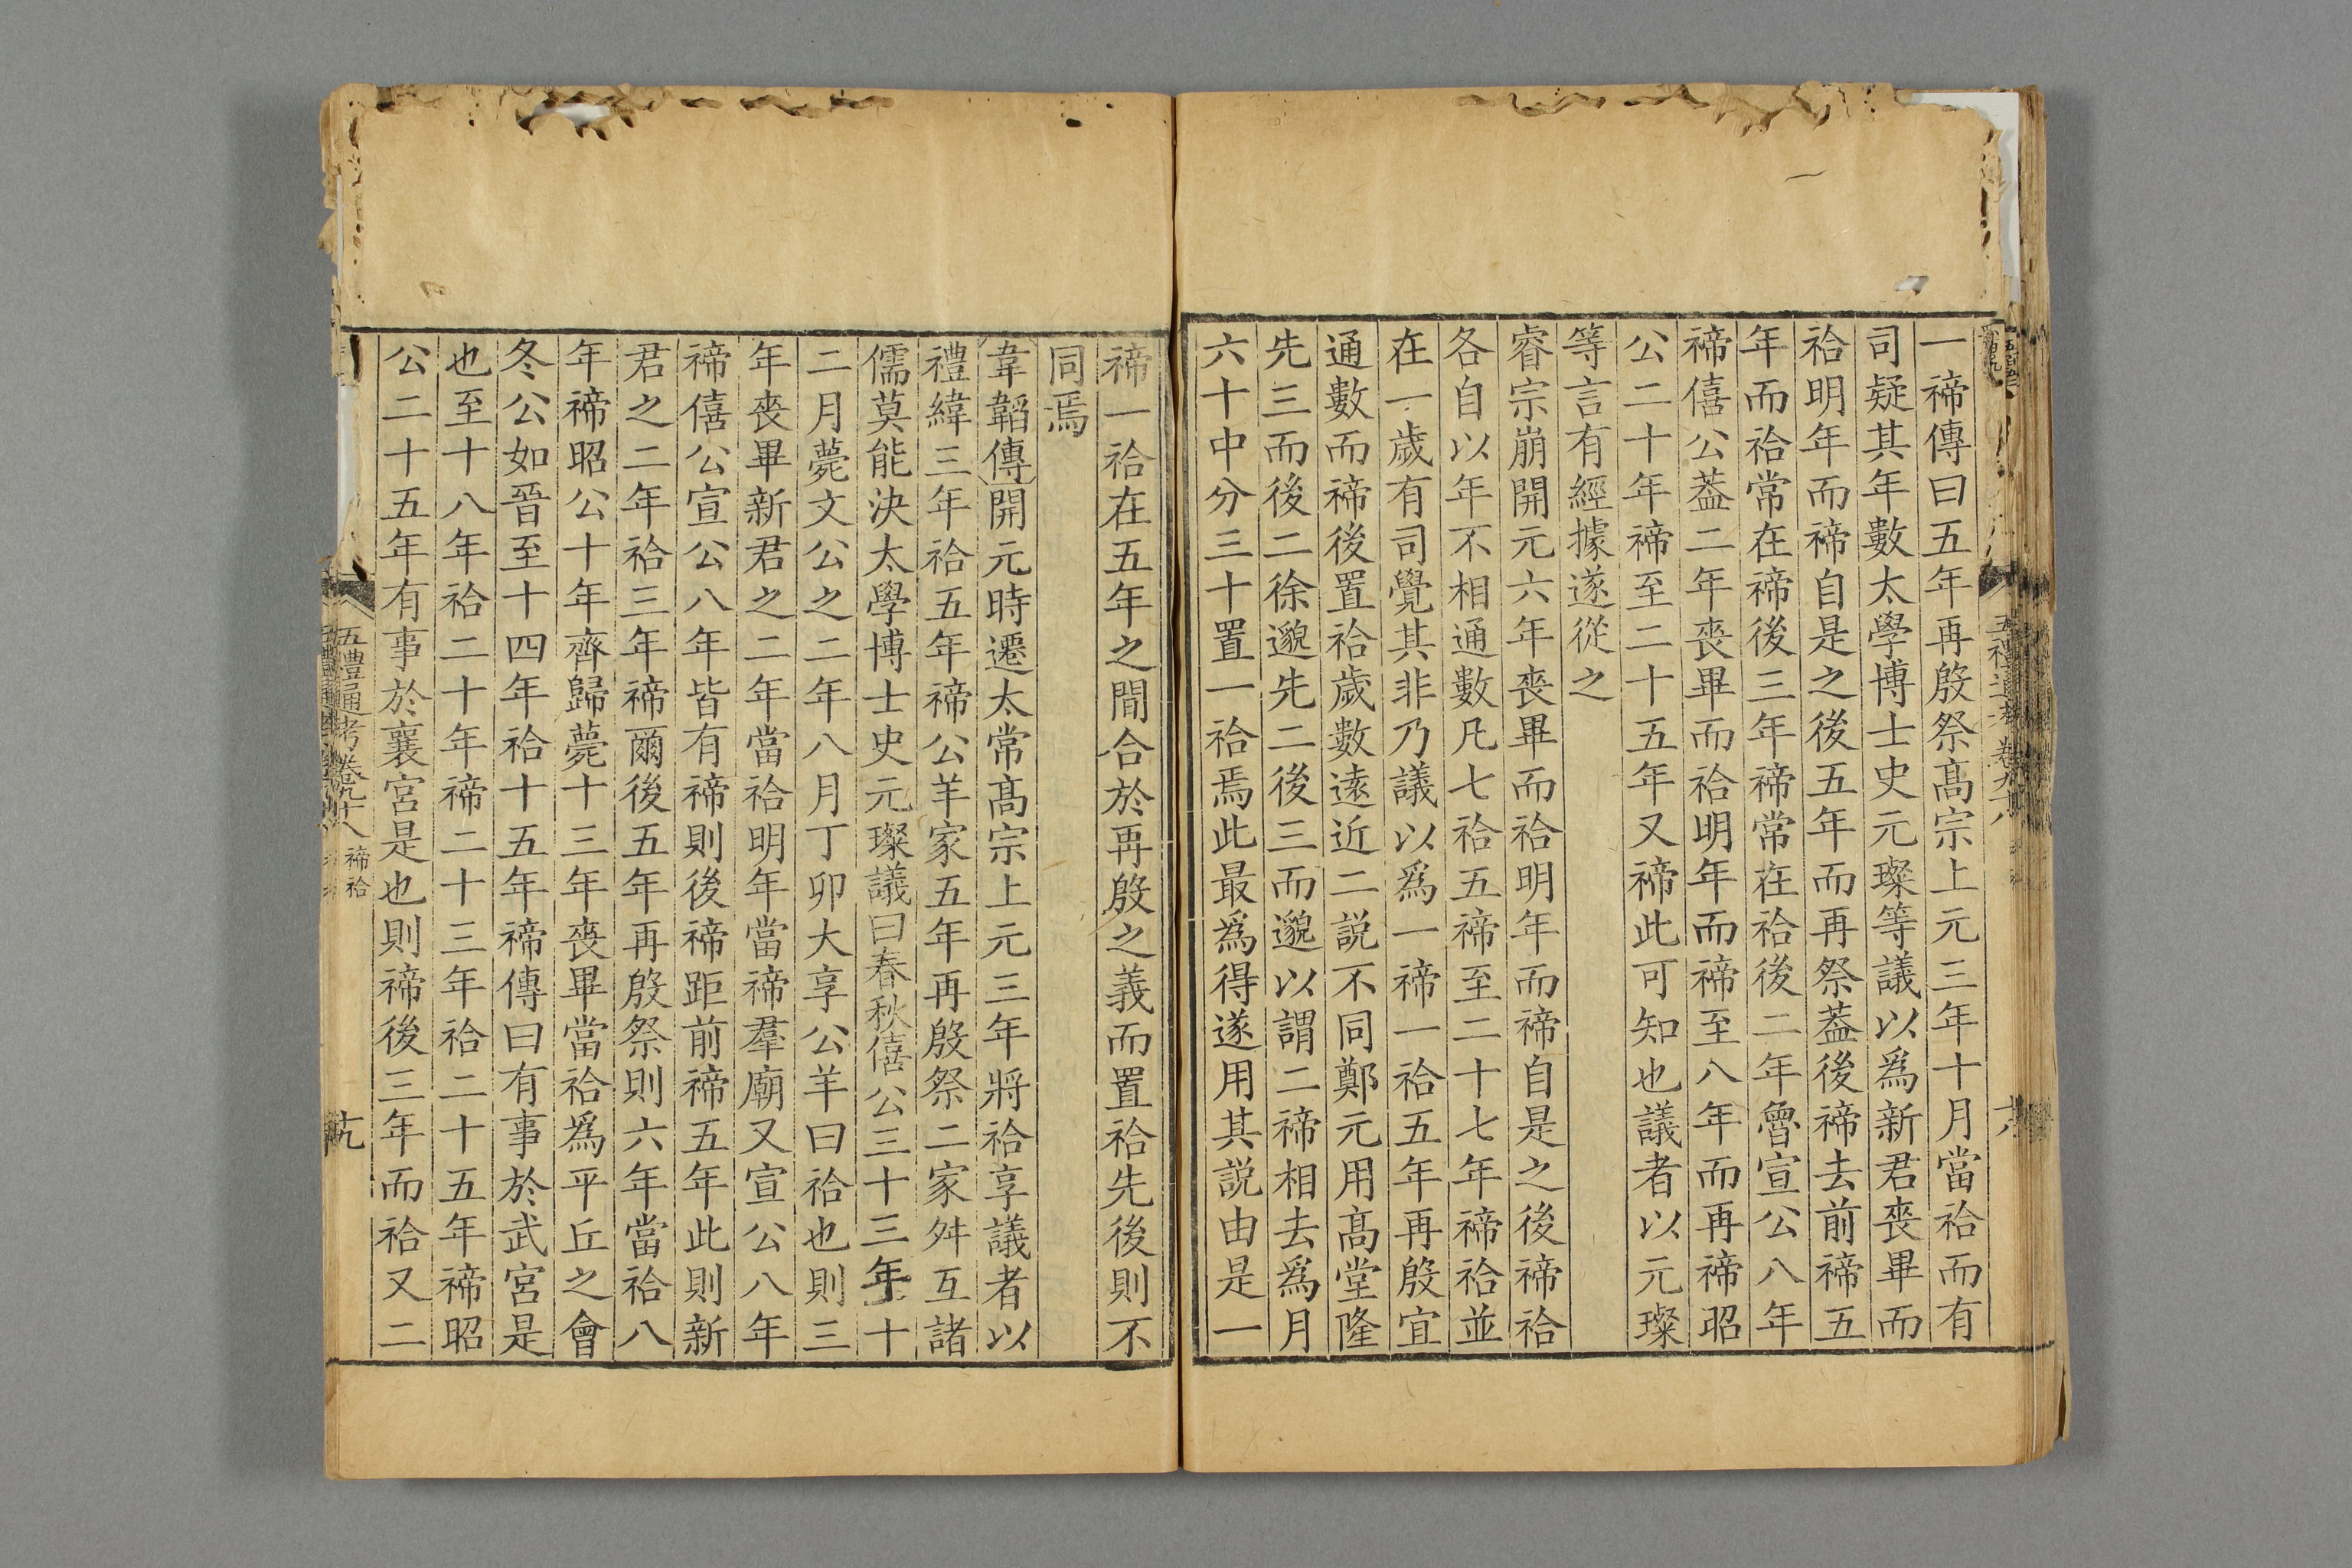 一禘傳曰五年再殷祭髙宗上元三年十月當祫而有
司疑其年數太學博士史元璨等議以爲新君喪畢而
祫明年而禘自是之後五年而再祭葢後禘去前禘五
年而祫常在禘後三年禘常在祫後二年魯宣公八年
禘僖公葢二年喪畢而祫明年而禘至八年而再禘昭
公二十年禘至二十五年又禘此可知也議者以元璨
等言有經據遂從之
睿宗崩開元六年喪畢而祫明年而禘自是之後禘祫
各自以年不相通數凡七祫五禘至二十七年禘祫並
在一歲有司覺其非乃議以爲一禘一祫五年再殷宜
通數而禘後置祫歲數遠近二説不同鄭元用髙堂隆
先三而後二徐邈先二後三而邈以謂二禘相去爲月
六十中分三十置一祫焉此最爲得遂用其説由是一
禘一祫在五年之間合於再殷之義而置祫先後則不
同焉
韋韜傳開元時遷太常髙宗上元三年將祫享議者以
禮緯三年祫五年禘公羊家五年再殷祭二家舛互諸
儒莫能決太學博士史元璨議曰春秋僖公三十三年十
二月薨文公之二年八月丁卯大享公羊曰祫也則三
年喪畢新君之二年當祫明年當禘羣廟又宣公八年
禘僖公宣公八年皆有禘則後禘距前禘五年此則新
君之二年祫三年禘爾後五年再殷祭則六年當祫八
年禘昭公十年齊歸薨十三年喪畢當祫爲平丘之會
冬公如晉至十四年祫十五年禘傳曰有事於武宮是
也至十八年祫二十年禘二十三年祫二十五年禘昭
公二十五年有事於襄宮是也則禘後三年而祫又二
五禮通考卷九十八 禘祫